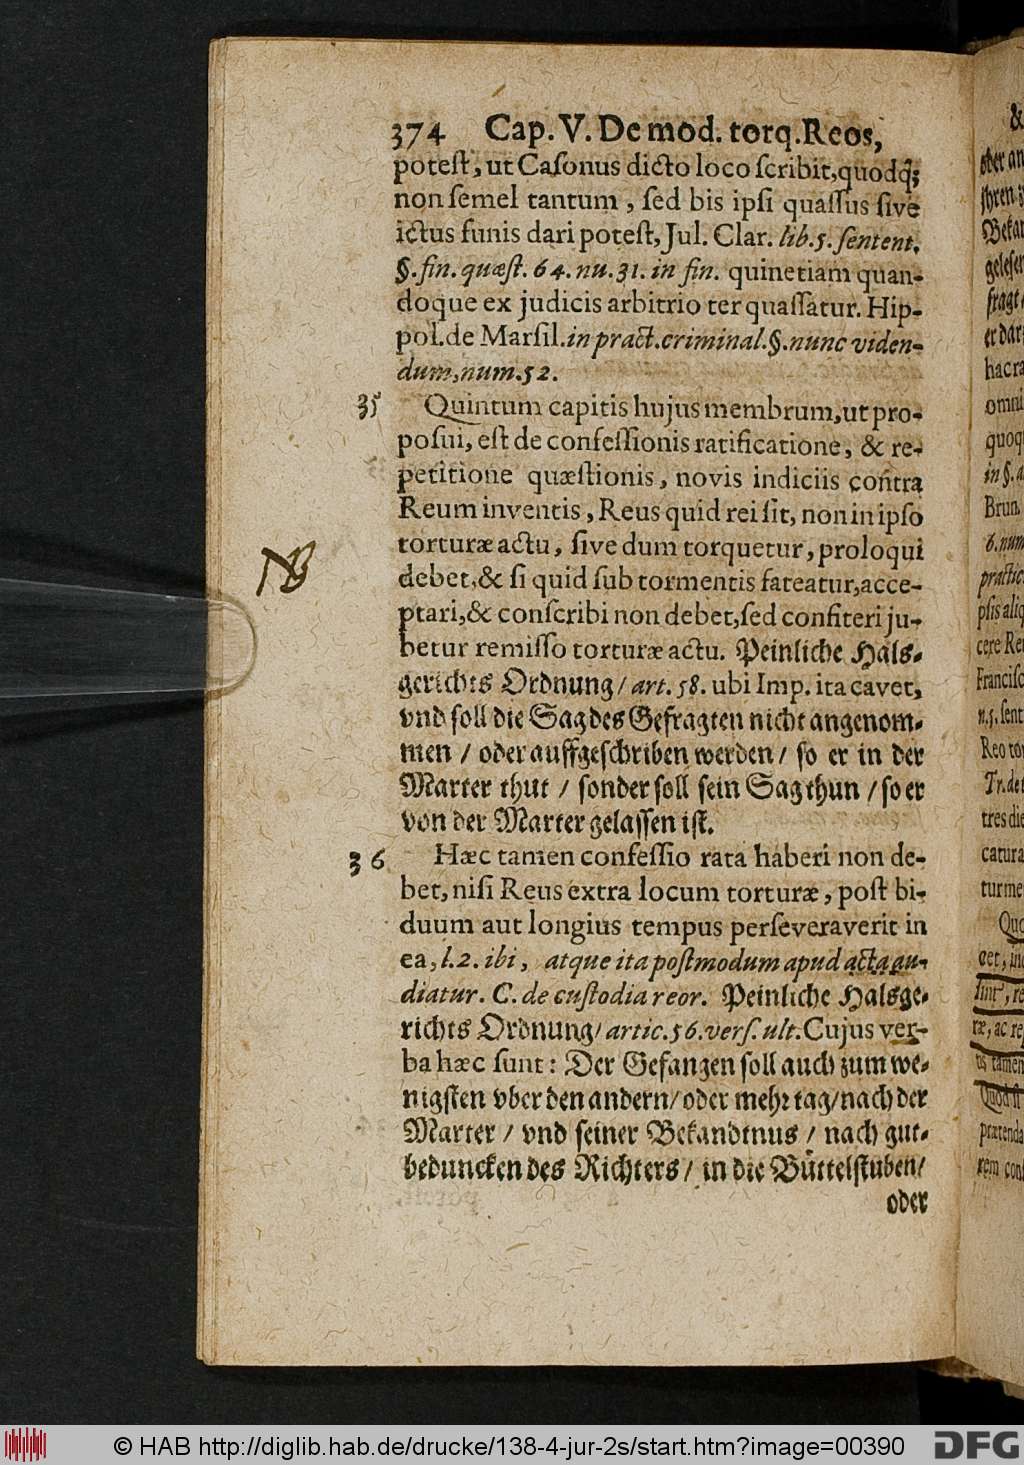 374 Cap. V. De mod. torq. Reos,
potest, ut Casonus dicto loco scribit, quodq;
non semel tantum, sed bis ipsi quassus sive
ictus funis dari potest, Jul. Clar. lib. 5. sentent.
§. fin. quæst. 64. nu. 31. in fin. quinetiam quan-
doque ex judicis arbitrio ter quassatur. Hip-
pol. de Marsil. in pract. criminal. §. nunc viden-
dum, num. 52.
35 Quintum capitis hujus membrum, ut pro-
posui, est de confessionis ratificatione, & re-
petitione quæstionis, novis indiciis contra
Reum inventis, Reus quid rei sit, non in ipso
torturæ actu, sive dum torquetur, proloqui
NB
debet, & si quid sub tormentis fateatur, acce-
ptari, & conscribi non debet, sed confiteri ju-
betur remisso torturæ actu. Peinliche Hals-
gerichts Ordnung / art. 58. ubi Imp. ita cavet,
vnd soll die Sag des Gefragten nicht angenom-
men / oder auffgeschriben werden / so er in der
Marter thut / sonder soll sein Sag thun / so er
von der Marter gelassen ist.
36 Hæc tamen confessio rata haberi non de-
bet, nisi Reus extra locum torturæ, post bi-
duum aut longius tempus perseveraverit in
ea, l. 2. ibi, atque ita postmodum apud acta au-
diatur. C. de custodia reor. Peinliche Halsge-
richts Ordnung / artic. 56. vers. ult. Cujus ver-
ba hæc sunt: Der Gefangen soll auch zum we-
nigsten vber den andern / oder mehr tag / nach der
Marter / vnd seiner Bekandtnus / nach gut-
beduncken des Richters / in die Büttelstuben /
oder
&
ober an
ihren
Bekan
gelesen
fragt
er dar
hac ra
omni
quoq
in §. a
Brun.
6. num
practic
psis aliq
cere Re
Francisc
n. 5. sent
Reo to
Tr. de
tres die
catura
tur me
Quo
eet, in
sint, re
ræ, ac re
us tamen
Quod si
prætenda
rem con
© HAB http://diglib.hab.de/drucke/138-4-jur-2s/start.htm?image=00390
DFG